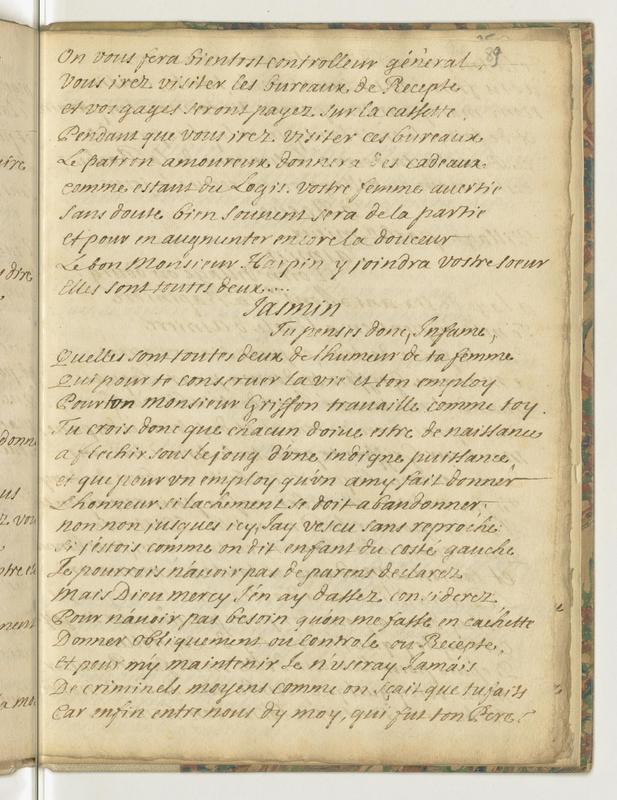 89
On vous fera bientost controlleur général.
Vous irez visiter les bureaux de Recepte
et vos gages seront payez sur la cassette.
Pendant que vous irez visiter ces bureaux
Le patron amoureux donnera des cadeaux
comme estant du Logis. vostre femme avertie
sans doute bien souvent sera de la partie
et pour en augmenter encore la douceur
Le bon Monsieur Harpin y joindra vostre soeur
Elles sont toutes deux....
Jasmin
Tu penses donc, Infame,
Quelles sont toutes deux de l'humeur de ta femme
Qui pour te conserver la vie et ton employ
Pour ton monsieur Griffon travaille comme toy.
Tu crois donc que chacun doive estre de naissance
a flechir sous le joug d'vne indigne puissance,
et que pour vn employ qu'vn amy fait donner
L'honneur si lachement se doit abandonner.
non non jusques icy, Jay vescu sans reproche
Si j'estois comme on dit enfant du costé gauche
Je pourrois n'auoir pas de parens declarez
Mais Dieu mercy J'en ay d'assez considerez
Pour n'auoir pas besoin quon me fasse en cachette
Donner obliquement ou Controle ou Recepte,
Et pour my maintenir Je n'vseray Jamais
De criminels moyens comme on sçait que tu fais
Car enfin entre nous dy moy, qui fut ton Pere?